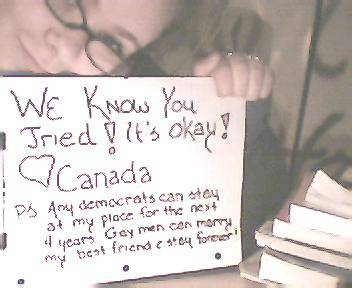 We Know You
Tried! It's okay!
Canada
PS Any democrats can stay
at my place for the next
4 years. Gay men can marry
my best friend & stay forever!